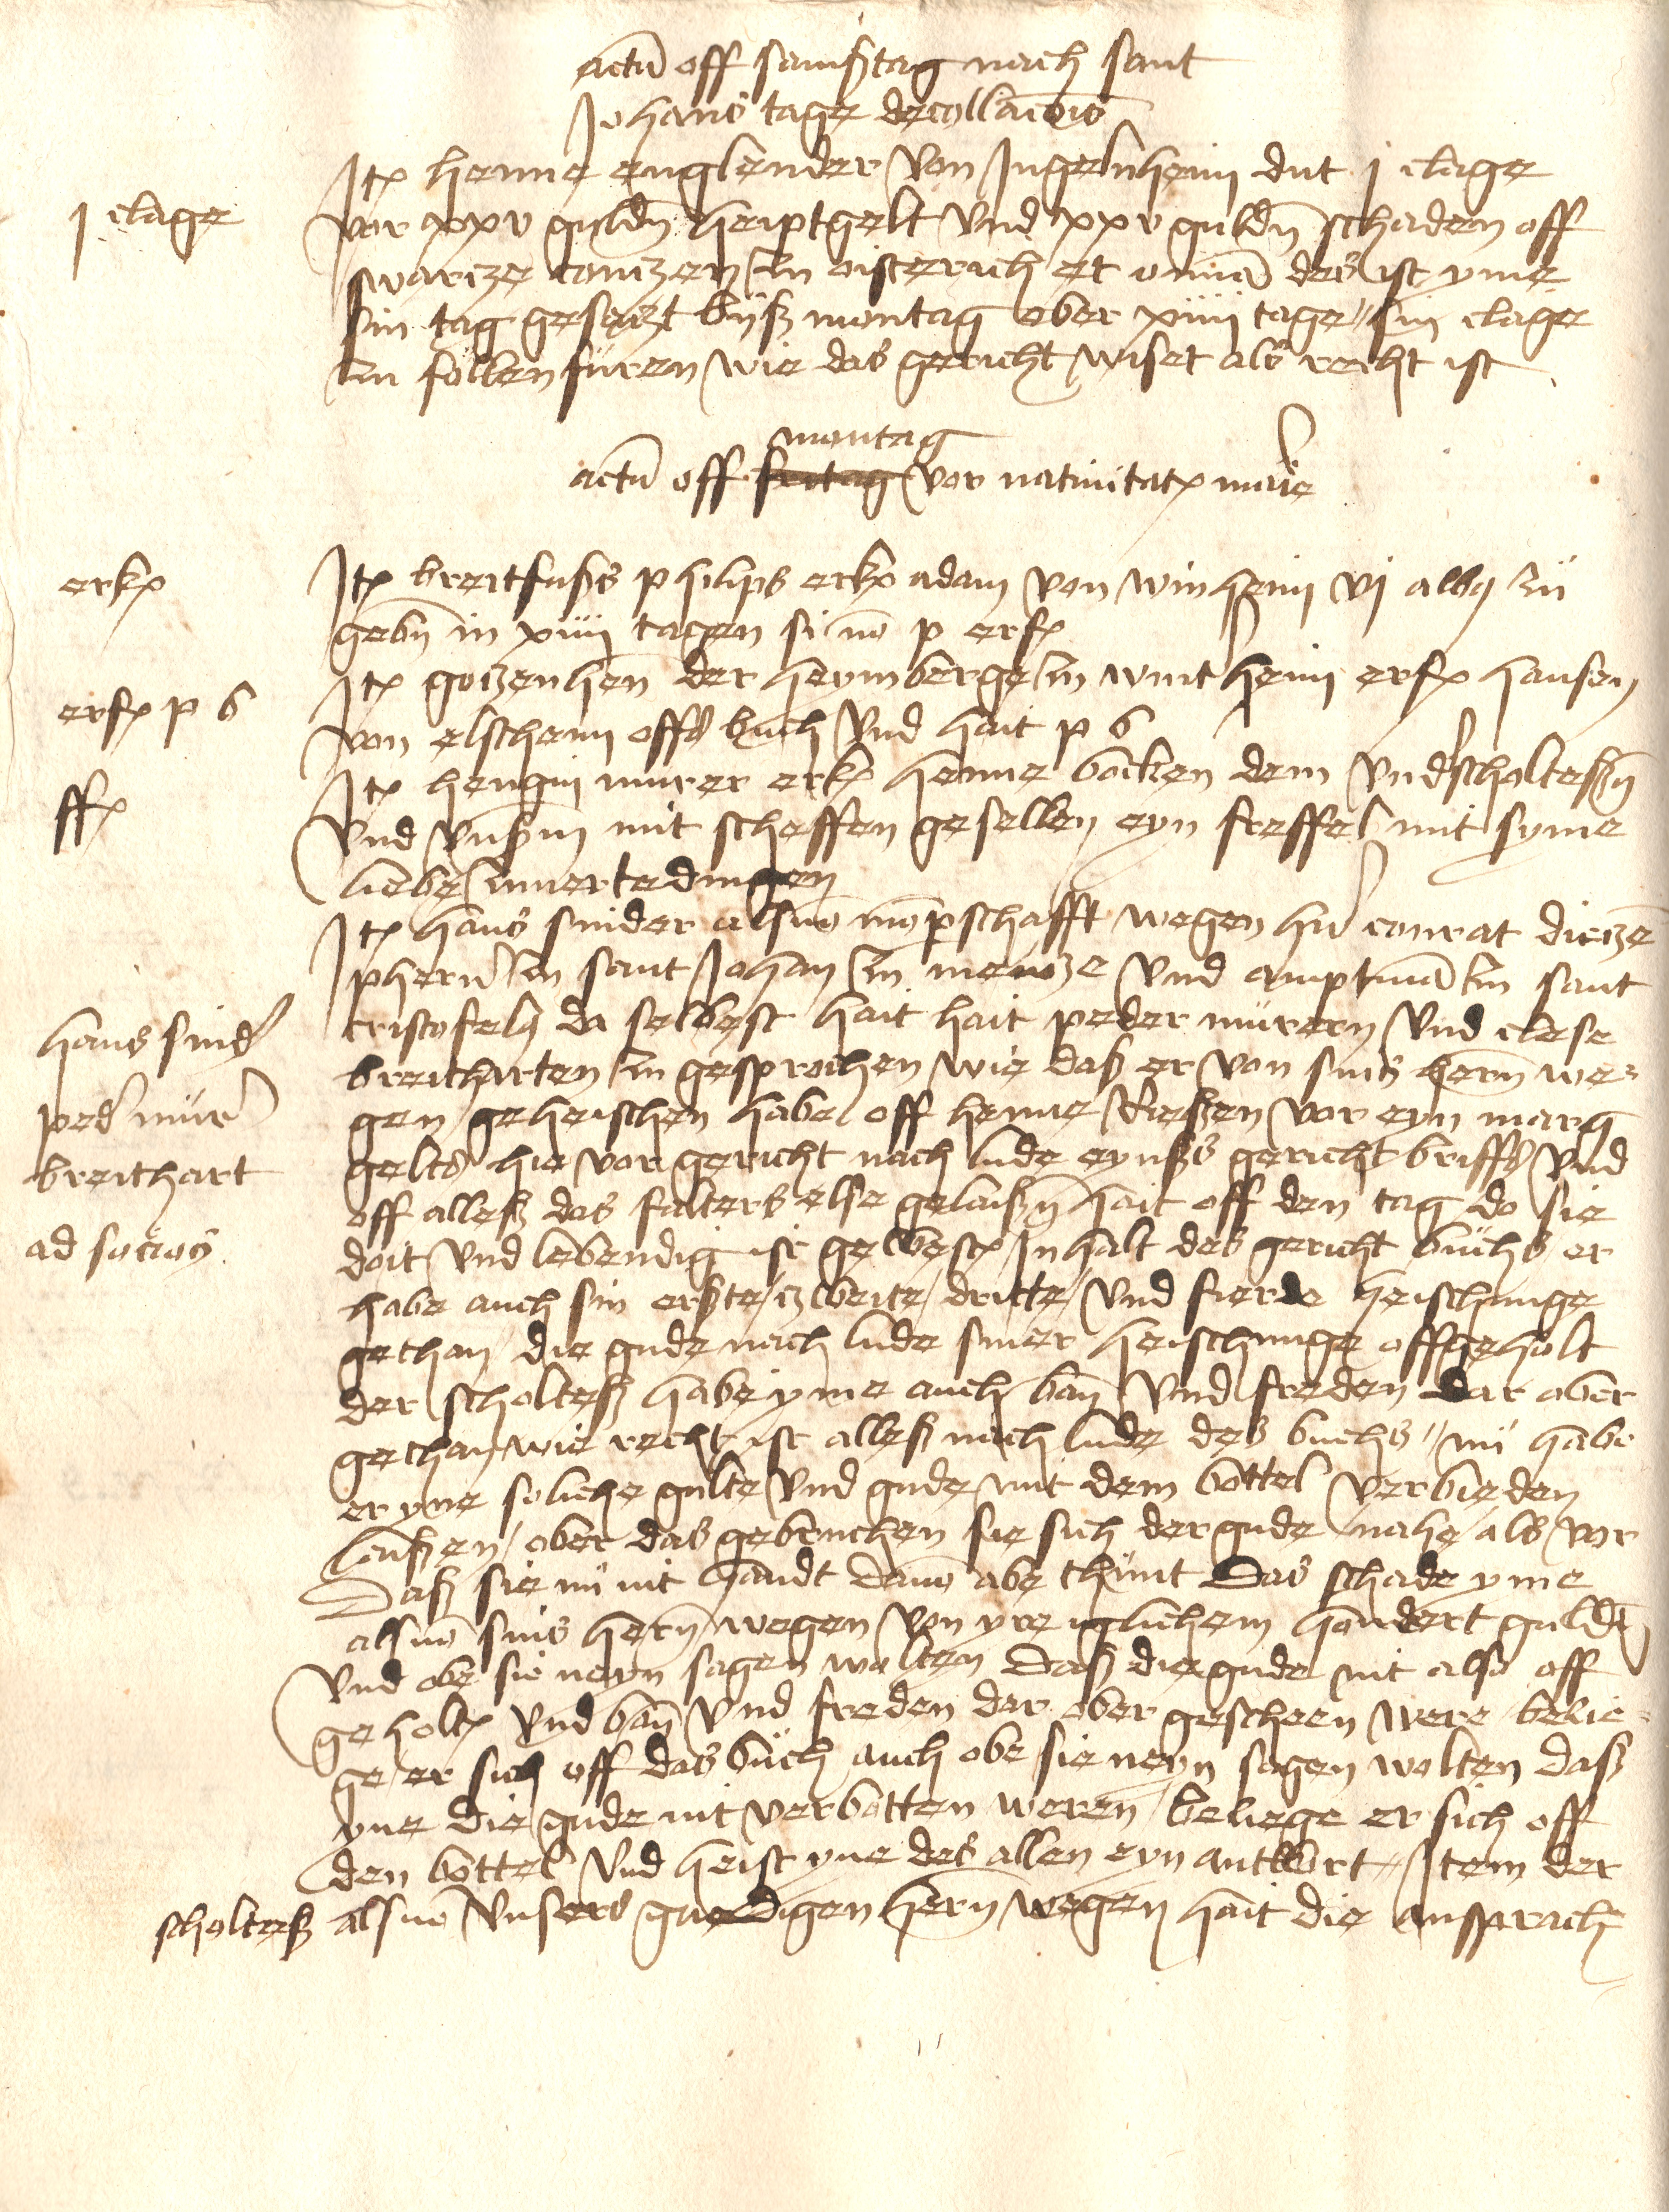 actu off samßtag nach sant
Johans tage decollacois
Ite henne englender von Ingelnheim dut j clage
j clage
vor xxv guldn heiptgelt vnd xxv guldn schaden off
swarcze conczen zu oisterich et omia des ist yme
sin tag gesaczt biß montag ober xiiij tage // sin clage
zu follenfuren wie das gericht wiset als recht ist
montag
actu off fritag vor natiuitate marie
erk
Ite breitfußs philips erk adam von winheim vj albq zu
gebn in xiiij tagen si no p erf
erf p b
Ite gotzen hen der heymberge zu wintheim erf hansen
von elscheim offs buch vnd hait p b
ff
Ite hengin murer erk henne bocken dem vndscholteßn
vnd vnßm mit scheffen gesellen eyn freffel mit syme
liebe zu uertedingen
Ite hans snider als uo mopschafft wegen hn conrat diecze
phern zu sant Johan zu mencze vnd amptma zu sant
hans snid
cristofeln da selbest hait hait peder murern vnd clese
breitharten zu gesprochen wie daß er von sins hern we-
ped mur
gen geheischen habe off henne rießen vor eyn marg
breithart
gelts hie vor gericht nach lude eynßs gericht briffs vnd
off alleß das falters else gelaißn hait off den tag do sie
ad socios
doit vnd lebendig ist gewest Inhalt des gericht buchs er
habe auch sin erste / zweite / dritte / vnd fierde heischunge
gethan die gude nach lude siner heischunge offgeholt
der scholteß habe yme auch ban vnd freden dar ober
gethan wie recht ist alleß nach lude des buchs // nu habe
er yne soliche gulte vnd gude mit dem bottel verbieden
laißen / ober das gebruchen sie sich der gude nahe als vor
Daß sie nu nit handt davo abe thunt Das schade yme
als uo sins hern wegen von yre iglichem hondert guldn
vnd obe sie neyn sagen wolten Daß die gude nit also off
geholt vnd ban vnd freden dar ober gescheen were belie-
ge er sich off das buch auch obe sie neyn sagen wolten daß
yne die gude nit verbotten weren beliege er sich off
den bottel vnd heist yne des allen eyn antwort // Item der
scholteß als uo vnsers gnedigen hern wegen hait die ansprach